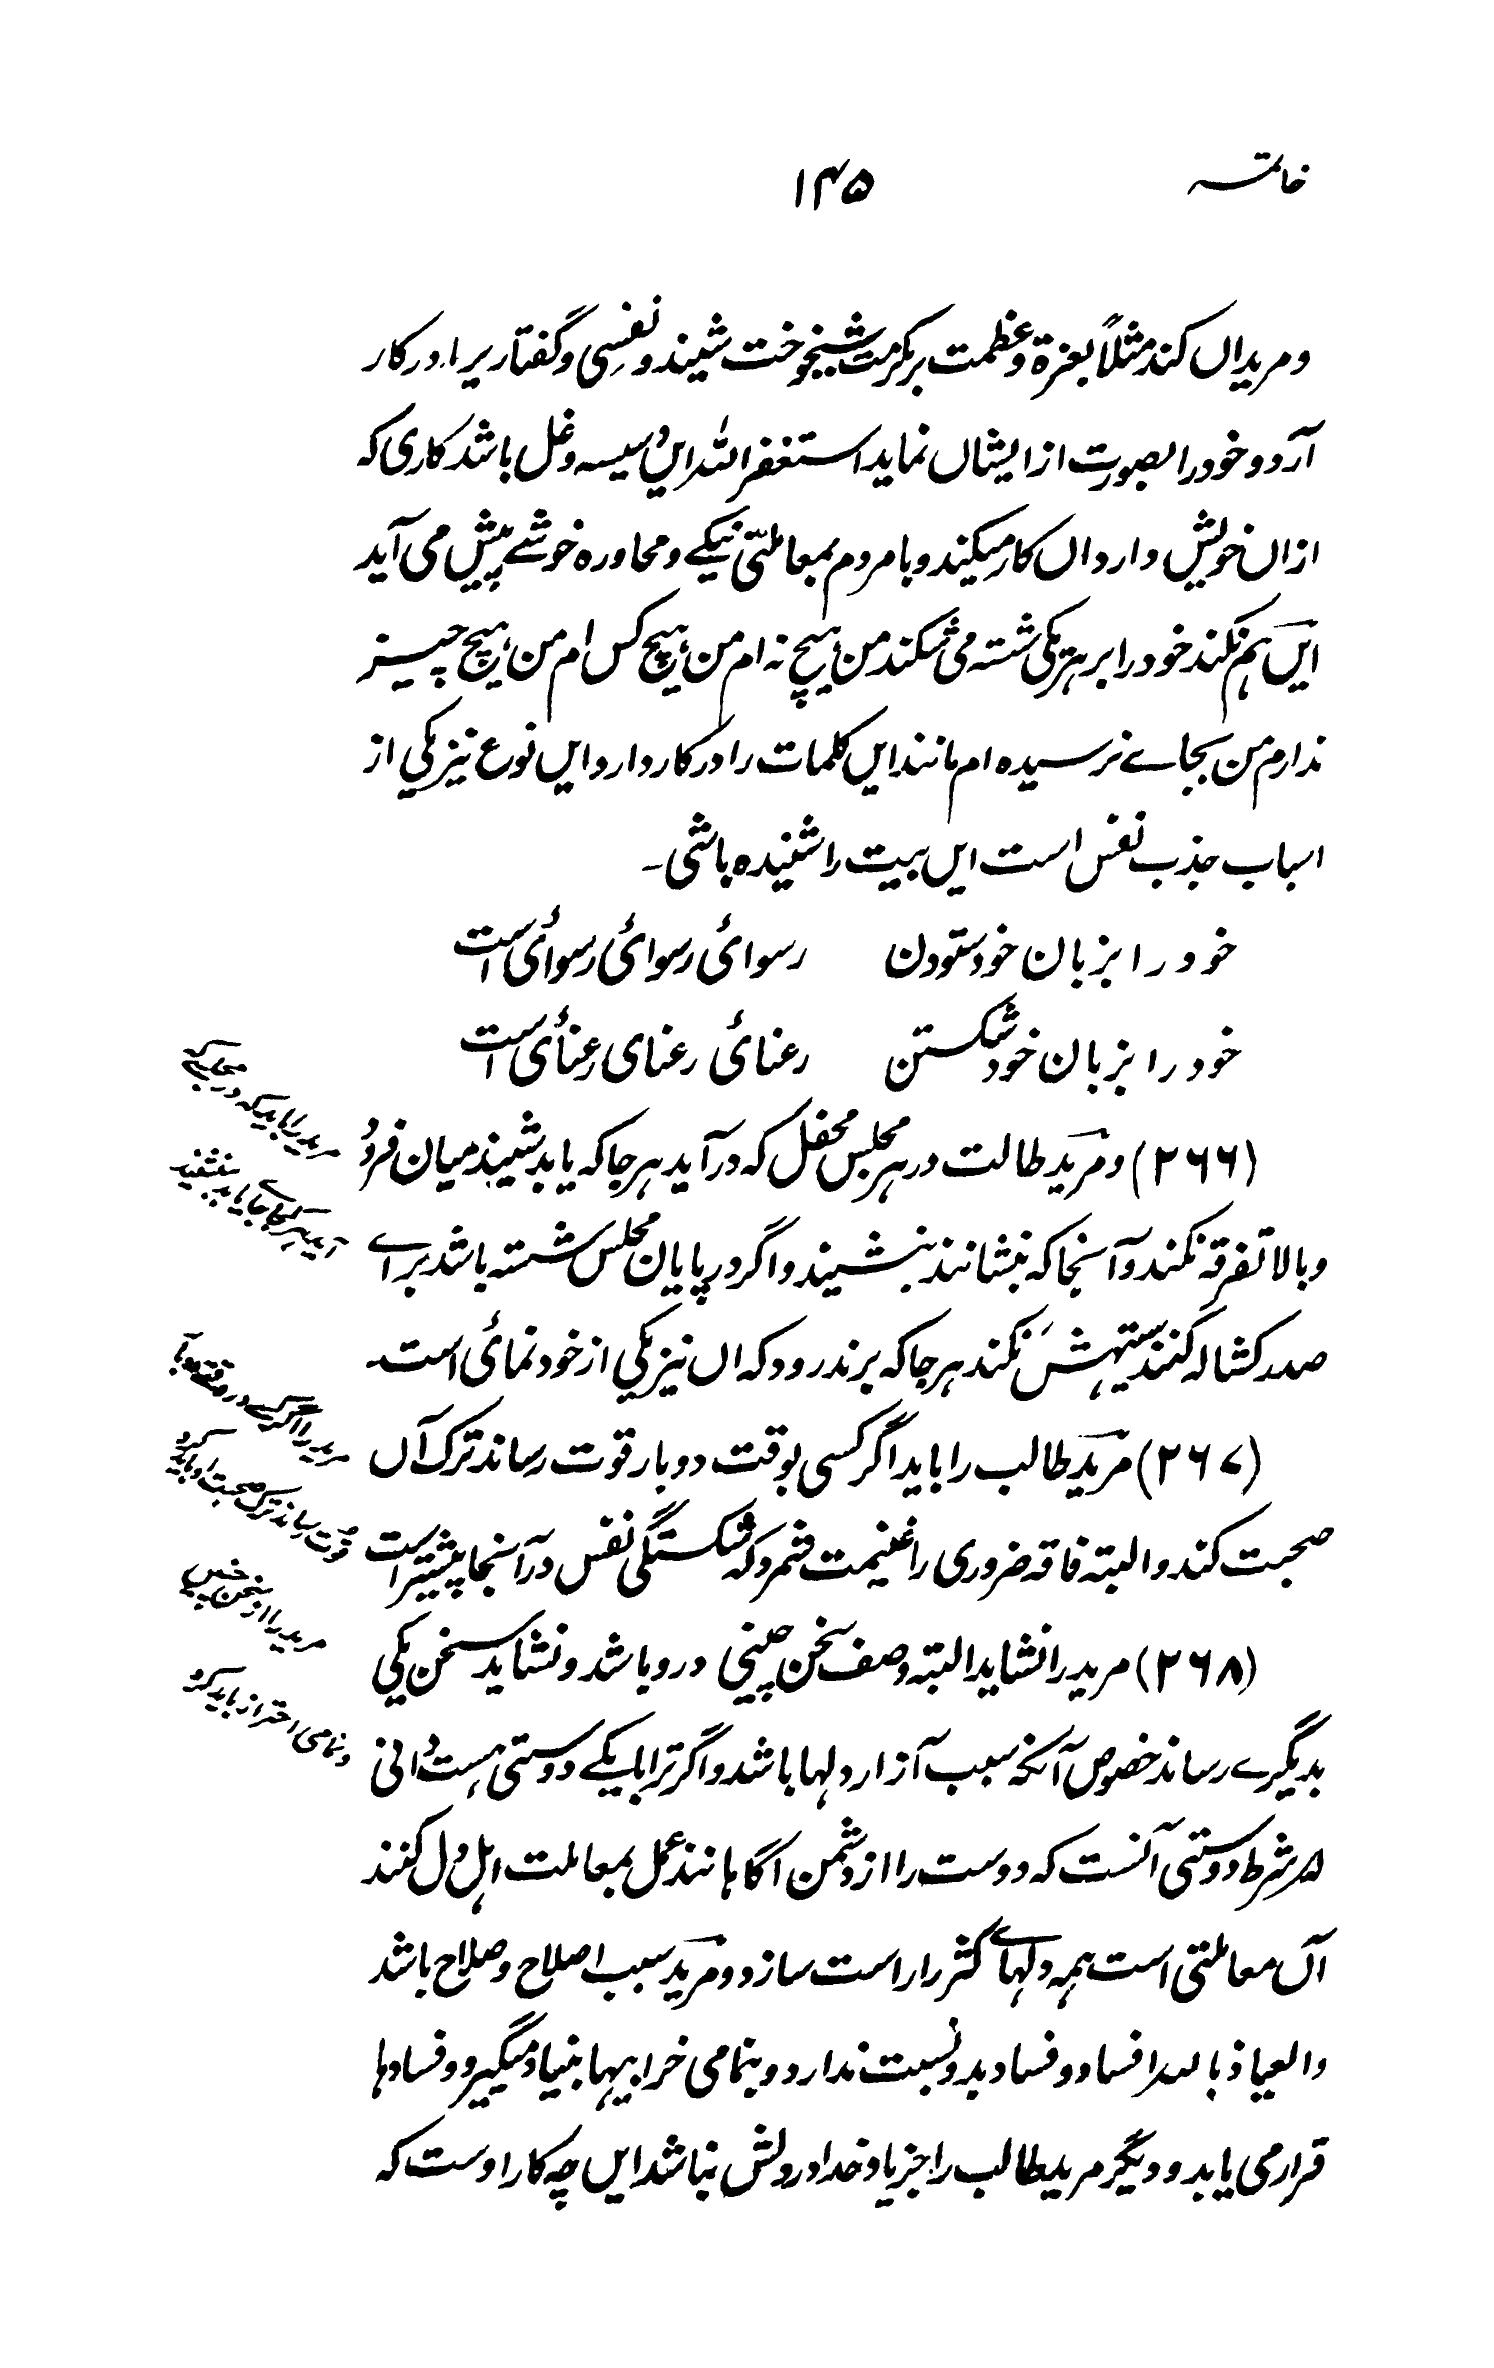 خاتمہ
۱۴۵
و مریداں کند مثلاً بعزة و عظمت بر کرمت شیخوخت شیند و نفسِی و گفتار پر باد در کار
آرد و خود را بصورت از ایشاں نماید استغفر اللہ ایں دسیسہ و غل باشد کاری کہ
ازان خویش دارد اں کار میکند و با مردم بمعاملتی نیکے و محاورہ خوشے پیش می آید
ایں ہم نکند خود را بر ہر یکی شستہ می شکند من ہیچ نہ ام من ہیچ کس ام من ہیچ چیز
ندارم من بجاے نرسیدہ ام مانند ایں کلمات را در کار دارد ایں نوع نیز یکی از
اسباب جذب نفس است ایں بیت را شنیدہ باشی۔
خود را بزبان خود ستودن رسوائی رسوائی رسوائی است
خود را بزبان خود شکستن رعنائی رعنای رعنائی است
(۲۶۶) و مرید طالت در ہر مجلس محفل کہ در آید ہر جا کہ یابد شیند میان فرود
و بالا تفرقہ نکند و آنجا کہ بنشانند بنشیند و اگر در پایان مجلس شستہ باشد براے
صدر کشالہ کنند ستیہش نکند ہر جا کہ برند رود کہ اں نیز یکی از خود نمائی است۔
(۲۶۷) مرید طالب را باید اگر کسی بوقت دوبار قوت رساند ترک آں
صحبت کند و البتہ فاقہ ضروری را غنیمت شمرد کہ شکستگی نفس در آنجا بیشتر است
(۲۶۸) مرید را نشاید البتہ وصف سخن چینی درو باشد و نشاید سخن یکی
بدیگرے رساند خصوص آنکہ سبب آزار دلہا باشد و اگر ترا با یکے دوستی ہست و دانی
شرط دوستی آنست کہ دوست را از دشمن اگاہانند عمل بمعاملت اہل دل کنند
آں معاملتی است ہمہ دلہاے کثر را راست سازد و مرید سبب اصلاح و صلاح باشد
والعیاذ باللہ افساد و فساد بدو نسبت ندارد و بنمامی خرابیہا بنیاد میگیرد و فسادہا
قرار می یابد و دیگر مرید طالب را جز یاد خدا درونش نباشد ایں چہ کار اوست کہ
مرید را باید کہ در مجلسے کہ
آید ہر کجا جاے یابد بنشیند
مرید را اگر کسے در فقہ با
قوت رساند ترک صحبت او باید کرد
مرید را از سخن چینی
و نمامی احتراز باید کرد